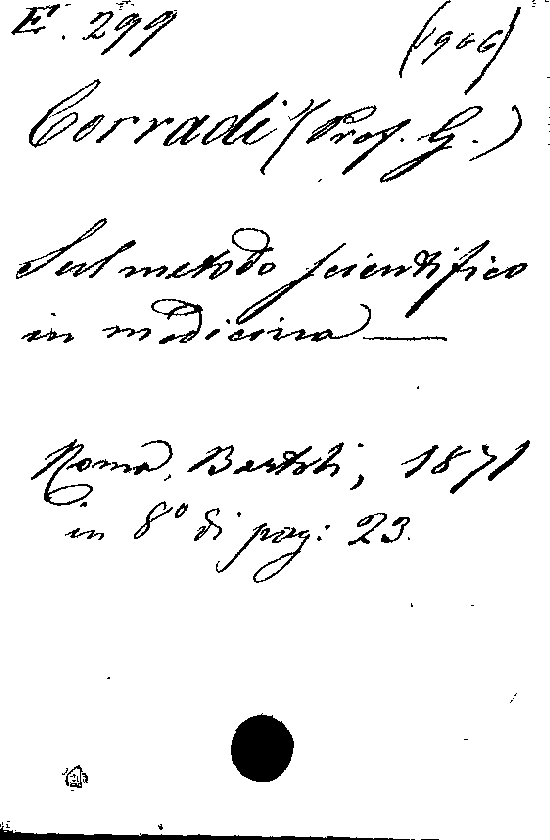 E. 299 (1906)
Corradi (Prof. G.)
Sul metodo scientifico
in medicina —
Roma, Bartoli, 1871
in 8° di pag: 23.